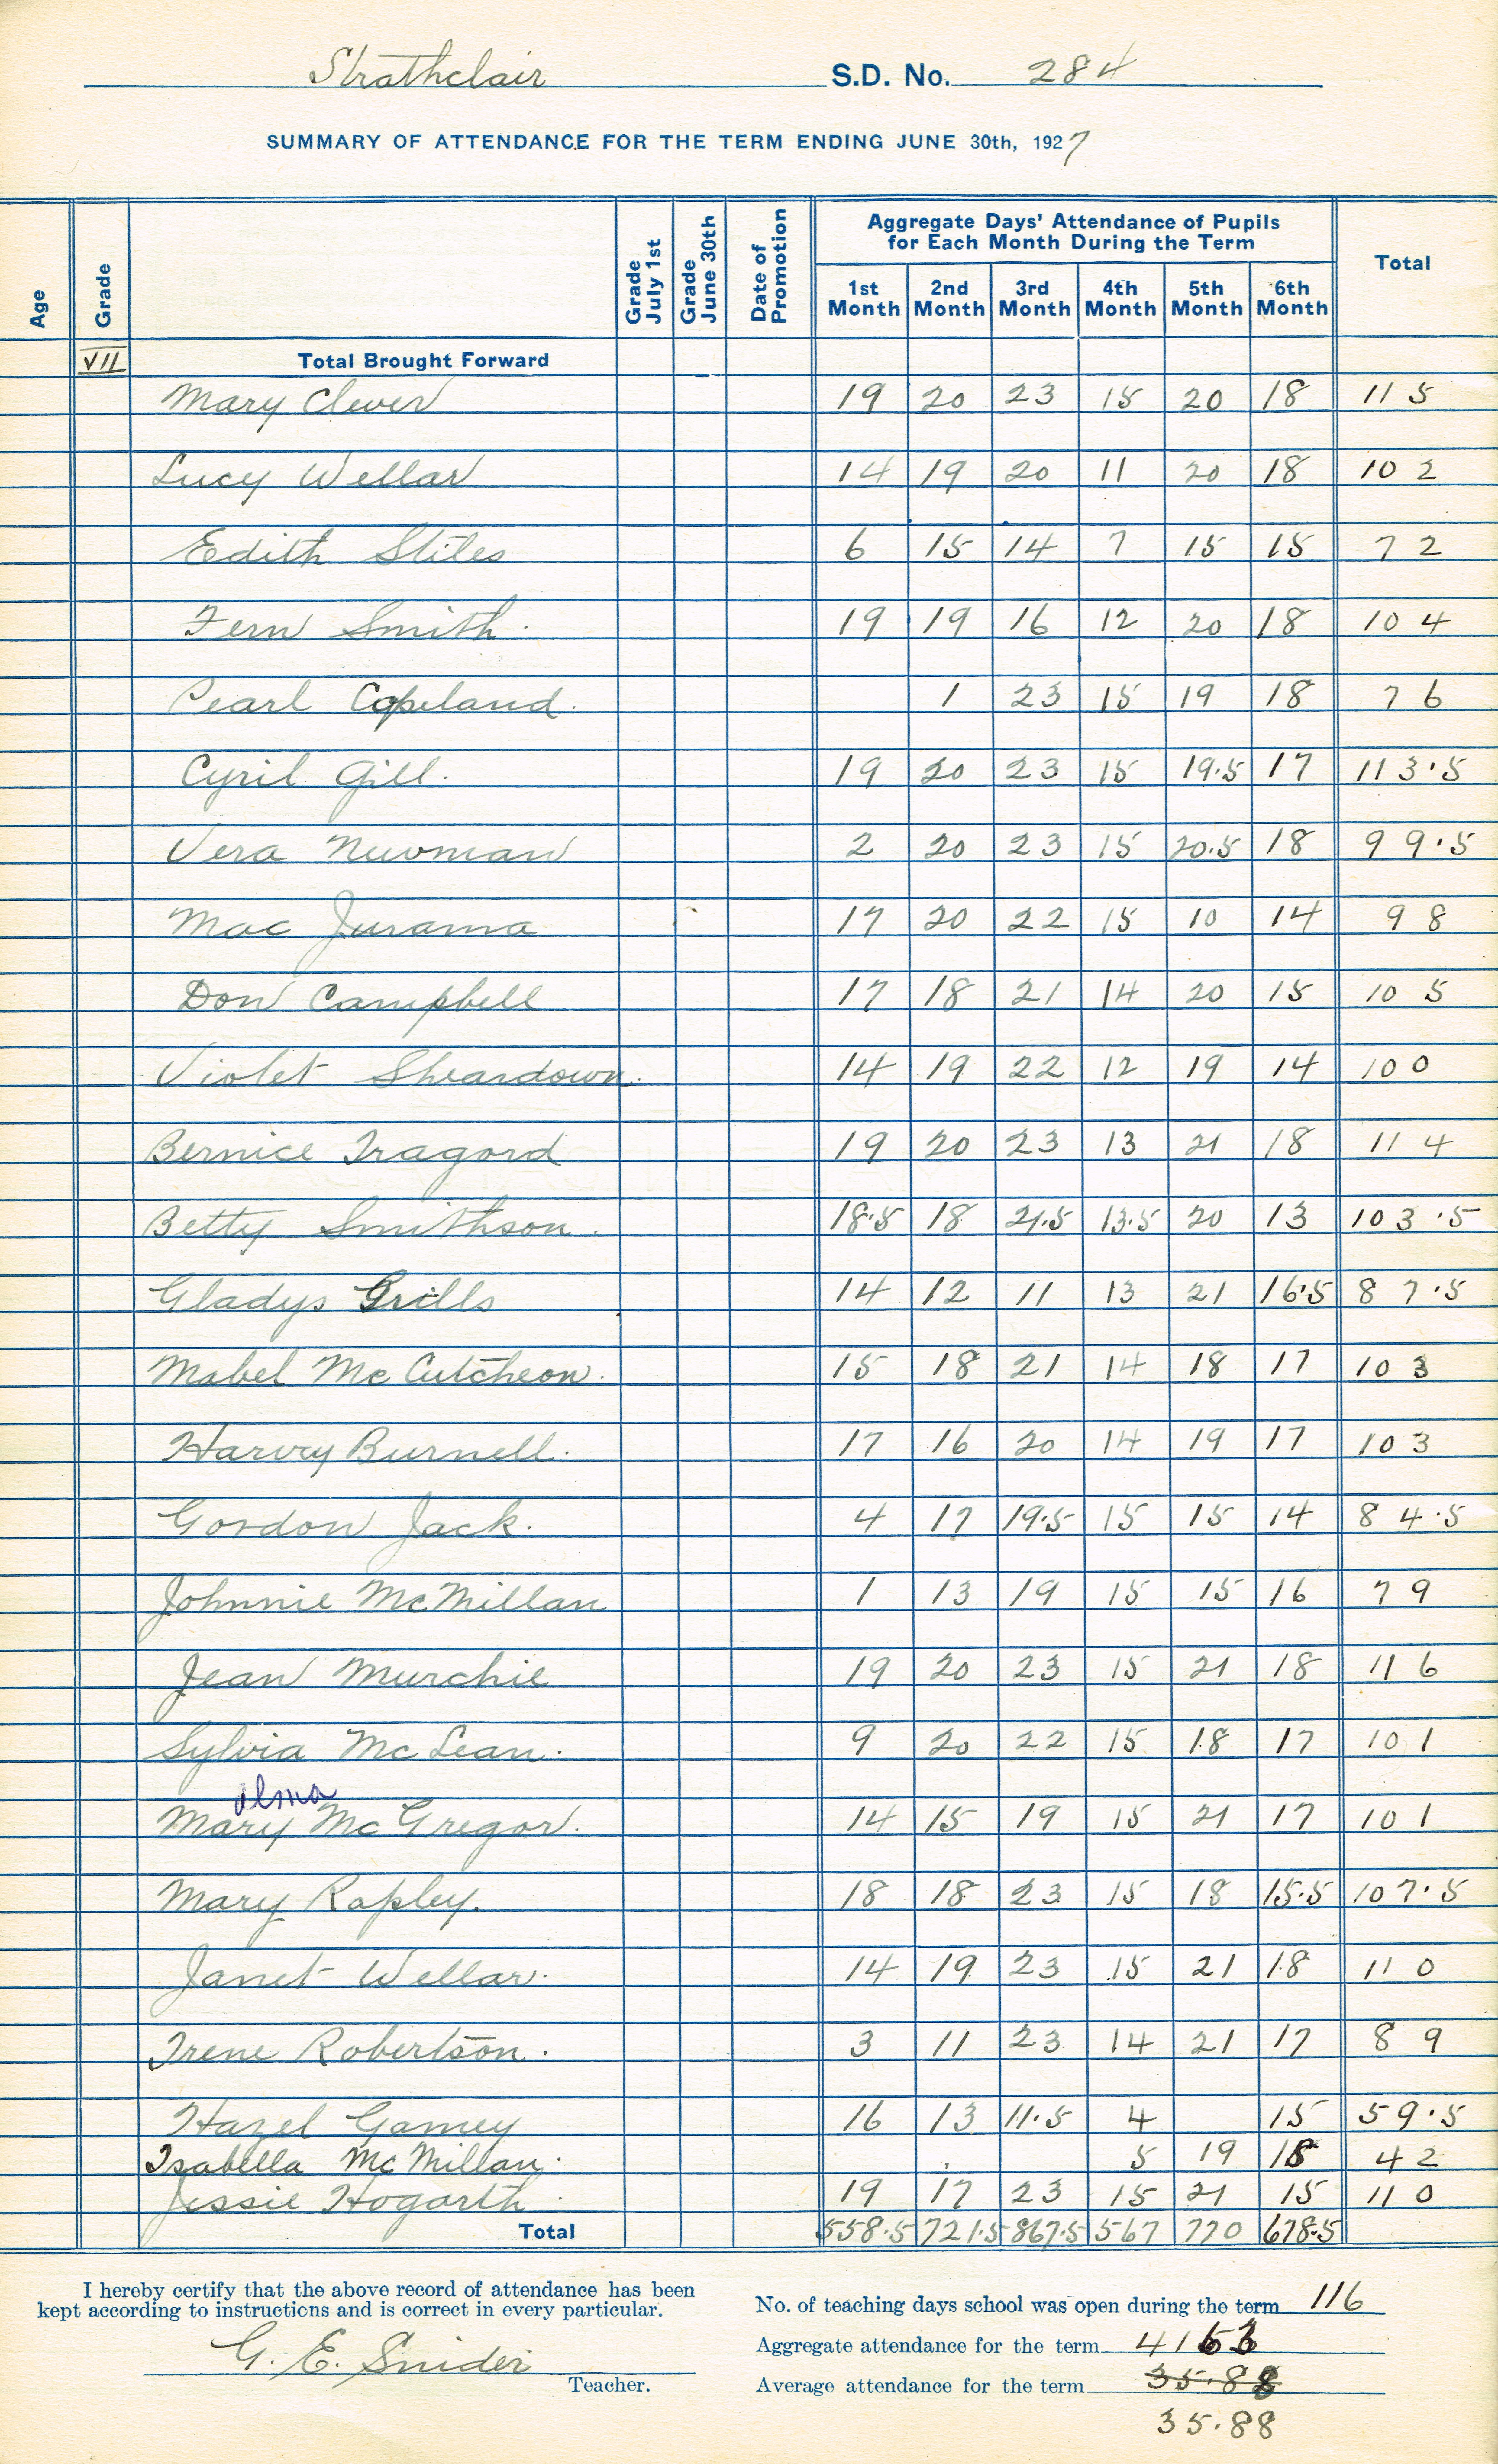 Strathclair S.D. No. 284
SUMMARY OF ATTENDANCE FOR THE TERM ENDING JUNE 30th, 1927
Age Grade Grade July 1st Grade June 30th Date of Promotion Aggregate Days' Attendance of Pupils for Each Month During the Term Total
1st Month 2nd Month 3rd Month 4th Month 5th Month 6th Month
VII Total Brought Forward
Mary Clever 19 20 23 15 20 18 115
Lucy Wellar 14 19 20 11 20 18 102
Edith Stiles 6 15 14 7 15 15 72
Fern Smith. 19 19 16 12 20 18 104
Pearl Copeland. 1 23 15 19 18 76
Cyril Gill. 19 20 23 15 19.5 17 113.5
Vera Newman 2 20 23 15 20.5 18 99.5
Mac Jurama 17 20 22 15 10 14 98
Don Campbell 17 18 21 14 20 15 105
Violet Sheardown. 14 19 22 12 19 14 100
Bernice Tragord 19 20 23 13 21 18 114
Betty Smithson. 18.5 18 21.5 13.5 20 13 103.5
Gladys Grills 14 12 11 13 21 16.5 87.5
Mabel McCutcheon. 15 18 21 14 18 17 103
Harvey Burnell. 17 16 20 14 19 17 103
Gordon Jack. 4 17 19.5 15 15 14 84.5
Johnnie McMillan 1 13 19 15 15 16 79
Jean Murchie 19 20 23 15 21 18 116
Sylvia McLean. 9 20 22 15 18 17 101
alma
Mary McGregor. 14 15 19 15 21 17 101
Mary Rapley. 18 18 23 15 18 15.5 107.5
Janet Wellar. 14 19 23 15 21 18 110
Irene Robertson. 3 11 23 14 21 17 89
Hazel Gamey 16 13 11.5 4 15 59.5
Isabella McMillan. 5 19 18 42
Jessie Hogarth 19 17 23 15 21 15 110
Total 558.5 721.5 867.5 567 770 678.5
I hereby certify that the above record of attendance has been
kept according to instructions and is correct in every particular.
G. E. Snider
Teacher.
No. of teaching days school was open during the term 116
Aggregate attendance for the term 4163
Average attendance for the term 35.88
35.88